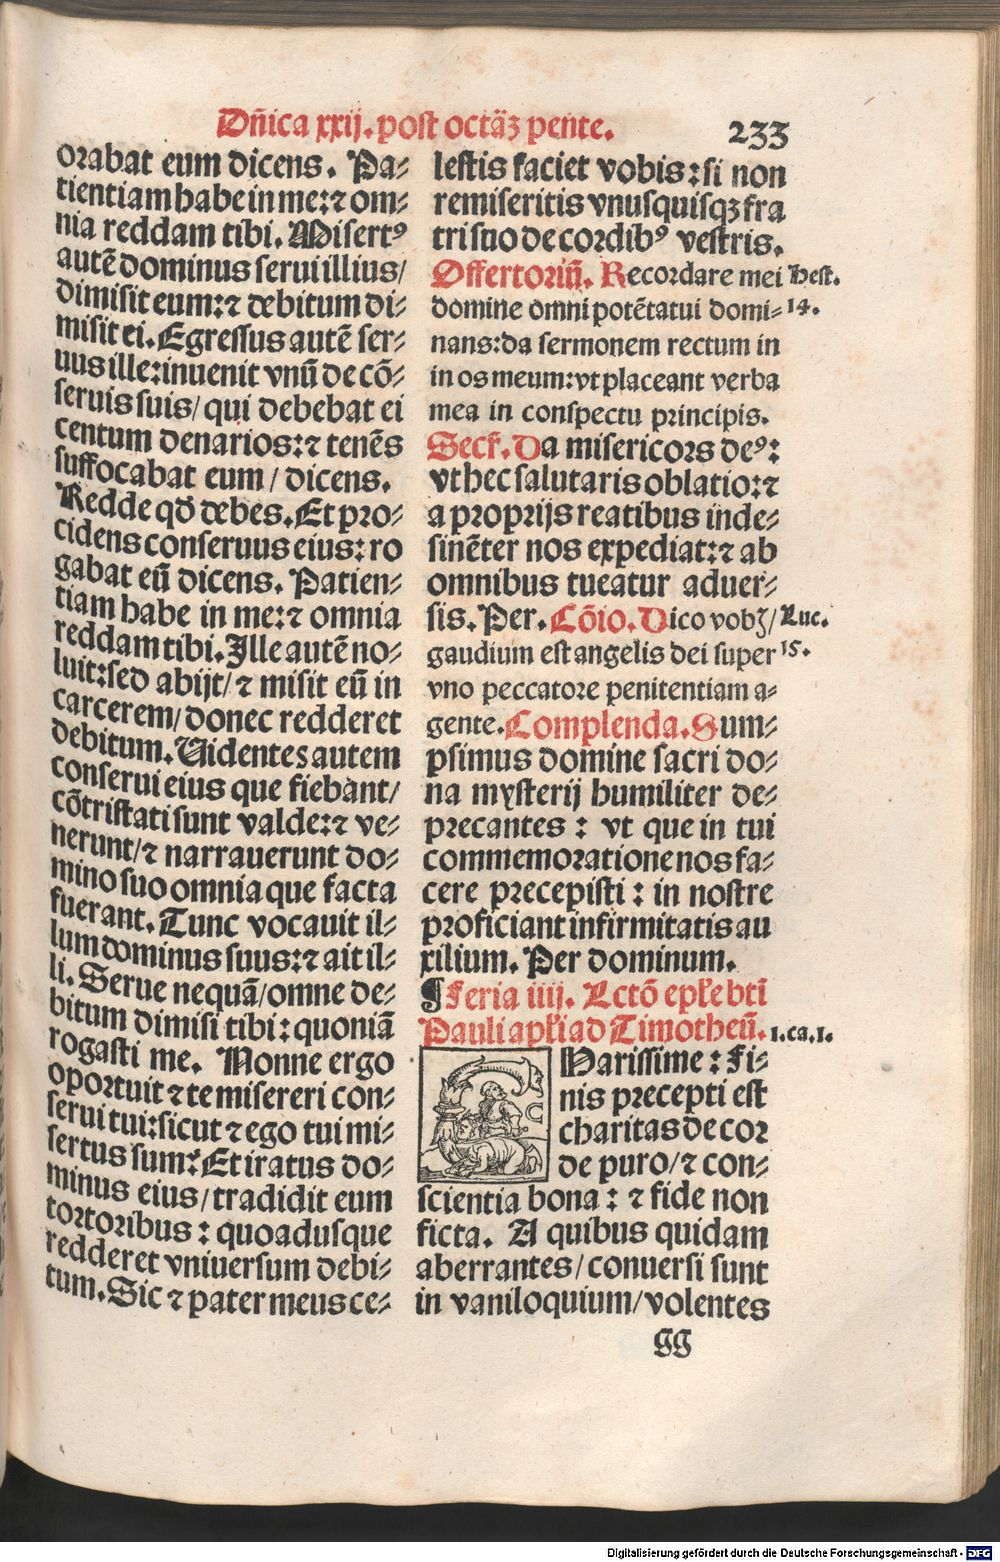 Dñica xxij. post octãꝫ pente. 233
orabat eum dicens. Pa⸗
tientiam habe in me:⁊ om⸗
nia reddam tibi. Misertꝰ
autẽ dominus serui illius/
dimisit eum:⁊ debitum di⸗
misit ei. Egressus autẽ ser⸗
uus ille:inuenit vnũ de cõ⸗
seruis suis/ qui debebat ei
centum denarios:⁊ tenẽs
suffocabat eum / dicens.
Redde qď debes. Et pro⸗
cidens conseruus eius: ro
gabat eũ dicens. Patien⸗
tiam habe in me:⁊ omnia
reddam tibi. Ille autẽ no⸗
luit:sed abijt/ ⁊ misit eũ in
carcerem/ donec redderet
debitum. Uidentes autem
conserui eius que fiebant/
cõtristati sunt valde:⁊ ve⸗
nerunt/⁊ narrauerunt do⸗
mino suo omnia que facta
fuerant. Tunc vocauit il⸗
lum dominus suus:⁊ ait il⸗
li. Serue nequã/omne de⸗
bitum dimisi tibi: quoniã
rogasti me. Nonne ergo
oportuit ⁊ te misereri con⸗
serui tui:sicut ⁊ ego tui mi⸗
sertus sum? Et iratus do⸗
minus eius/tradidit eum
tortoribus : quoadusque
redderet vniuersum debi⸗
tum. Sic ⁊ pater meus ce⸗
lestis faciet vobis:si non
remiseritis vnusquisqꝫ fra
tri suo de cordibꝰ vestris.
Offertoriũ. Recordare mei Hest.
domine omni potẽtatui domi⸗ 14.
nans:da sermonem rectum in
in os meum:vt placeant verba
mea in conspectu principis.
Secr̃. Da misericors deꝰ:
vt hec salutaris oblatio:⁊
a proprijs reatibus inde⸗
sinẽter nos expediat:⁊ ab
omnibus tueatur aduer⸗
sis. Per. Cõio. Dico vobꝫ/ Luc.
gaudium est angelis dei super 15.
vno peccatore penitentiam a⸗
gente. Complenda. Sum⸗
psimus domine sacri do⸗
na mysterij humiliter de⸗
precantes : vt que in tui
commemoratione nos fa⸗
cere precepisti : in nostre
proficiant infirmitatis au
xilium. Per dominum.
¶ Feria iiij. Lctõ epľe btĩ
Pauli apľi ad Timotheũ. 1.ca.1.
C Harissime : Fi⸗
nis precepti est
charitas de cor
de puro/⁊ con⸗
scientia bona : ⁊ fide non
ficta. A quibus quidam
aberrantes/ conuersi sunt
in vaniloquium/volentes
gg
Digitalisierung gefördert durch die Deutsche Forschungsgemeinschaft - DFG